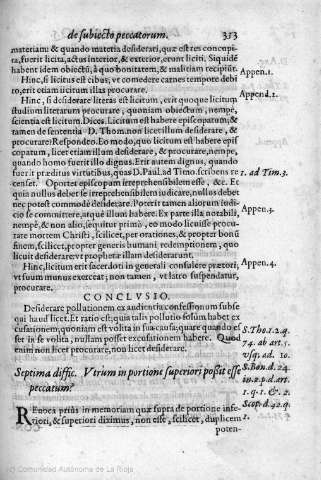 de subiecto peccatorum. 353
materiam: & quando materia desiderati, quæ est res concepita,
fuerit licita, actus interior, & exterior, erunt liciti. Siquidem
habent idem obiectũ, à quo bonitatem, & malitiam recipiũt.
Hinc, si licitus est cibus, vt comedere carnes tempore debito,
erit etiam licitum illas procurare.
Appen. 1.
Hinc, si desiderare literas est licitum, erit quoque licitum
studium literarum procurare, quoniam obiectum, nempè,
scientia est licitum. Dices. Licitum est habere episcopatum, &
tamen de sententia D. Thom. non licet illum desiderare, &
procurare: Respondeo. Eo modo, quo licitum est habere episcopatum,
licet etiam illum desiderare, & procurare, nempe,
quando homo fuerit illo dignus. Erit autem dignus, quando
fuerit præditus virtutibus, quas D. Paul. ad Timo. scribens recenset.
Oportet episcopum irreprehensibilem esse, &c. Et
Append. 1.
1. ad Tim. 3.
quia nullus debet se irreprehensibilem iudicare, nullus debet
nec potest commodè desiderare. Poterit tamen aliorum iudicio
se committere, atque illum habere. Ex parte illa notabili,
nempè, & non alio, sequitur primò, eo modo licuisse procurare
mortem Christi, scilicet, per orationes, & propter bonũ
finem, scilicet, propter generis humani redemptionem, quo
licuit desiderare: vt prophetæ illam desiderarunt.
Appen. 3.
Hinc, licitum erit sacerdoti in generali consulere præ
vt suum munus exerceat; non tamen, vt latro suspendatur,
procurare.
Appen. 4.
CONCLVSIO.
Desiderare pollutionem ex audientia confessionum subsequi
haud licet. Et ratio est; quia talis pollutio solum habet excusationem,
quoniam est volita in sua causa; quare quando esset
in se volita, nullam posset excusationem habere. Quod
enim non licet procurare, non licet desiderare.
S. Tho. 1. 2. q.
74. ab art. 5.
vsq; ad. 10.
Septima diffic. Vtrum in portione superiori possit esse
peccatum?
S. Bon. d. 24.
in 2. p. d. art.
1. q. 1. & 2.
Scot. d. 42. q.
1.
REuoca priùs in memoriam quæ supra de portione inferiori,
& superiori diximus, non esse, scilicet, duplicem
poten-
(c) Comunidad Autónoma de La Rioja